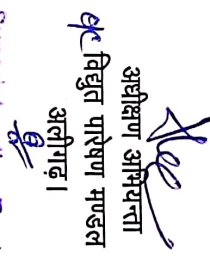 अधीक्षण अभियन्ता
विद्युत पारेषण मण्डल
अलीगढ़।